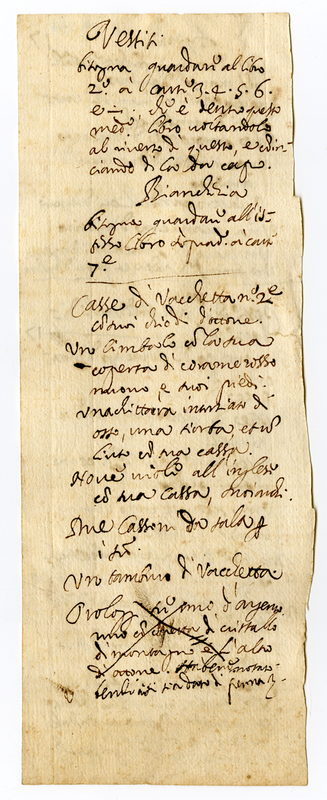 Vestiti
bisogna guardare al libro
2.º à carte 3. 4. 5. 6.
e che è dentro questo
med.º libro voltandolo
al riverso di questo, e comin-
ciando di là da capo.
Bianch.ria
bisogna guardare all' is-
tesso libro à carte
7.e
Casse di Vacchetta n.º 2e
cò suoi chiodi d'ottone.
Un Cimbolo cò la sua
coperta di corame rosso
nuovo, e suoi piedi.
Una chittara intarsiata di
osso, una tiorba, et un
Liuto cò sua cassa.
Nove viole all' inglese
cò sua Cassa,
Due Cassoni da sala
Un tamburo di Vacchetta
Orologi uno d'argento
uno cò coperta di cristallo
di montagna e l'altro
di ottone.